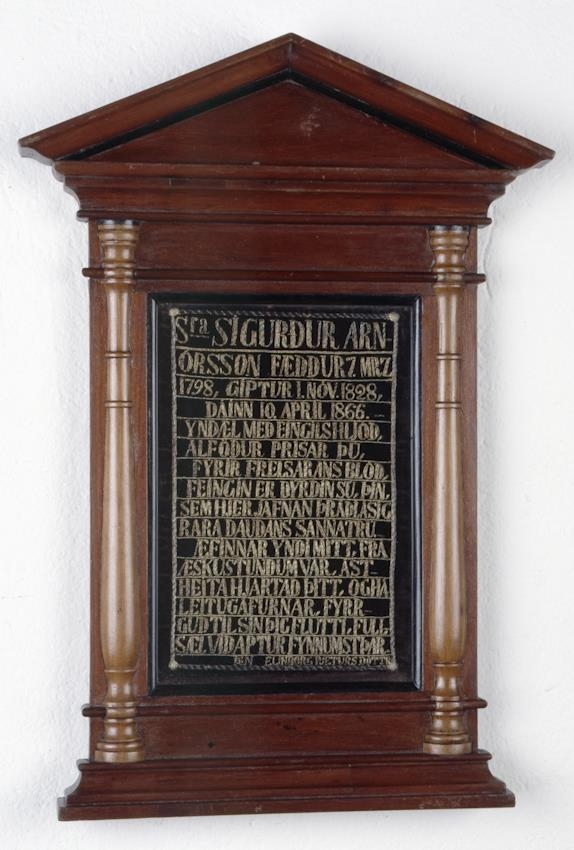 Sra SIGURDUR ARN-
ORSSON FÆDDUR 7. MRZ
1798, GIPTUR 1. NOV. 1828,
DAINN 10. APRIL 1866.
YNDÆL MED EINGILSHLJOD,
ALFÖDUR PRISAR ÞU,
FYRIR FRELSARANS BLOD
FEINGIN ER DYRDIN SU, ÞIN,
SEM HJER JAFNAN ÞRADI
RARA DAUDANS SANNATRU.
ÆFINNAR YNDI MITT, FRA
ÆSKUSTUNDUM VAR, AST-
HEITA HJARTAD ÞITT, OG HA
LEITU GAFURNAR, FYRR
GUD TIL SIN ÞIG FLUTTI, FULL
SÆL VID APTUR FYNNUMST ÞAR.
ELINBORG PJETURSDOTTIR